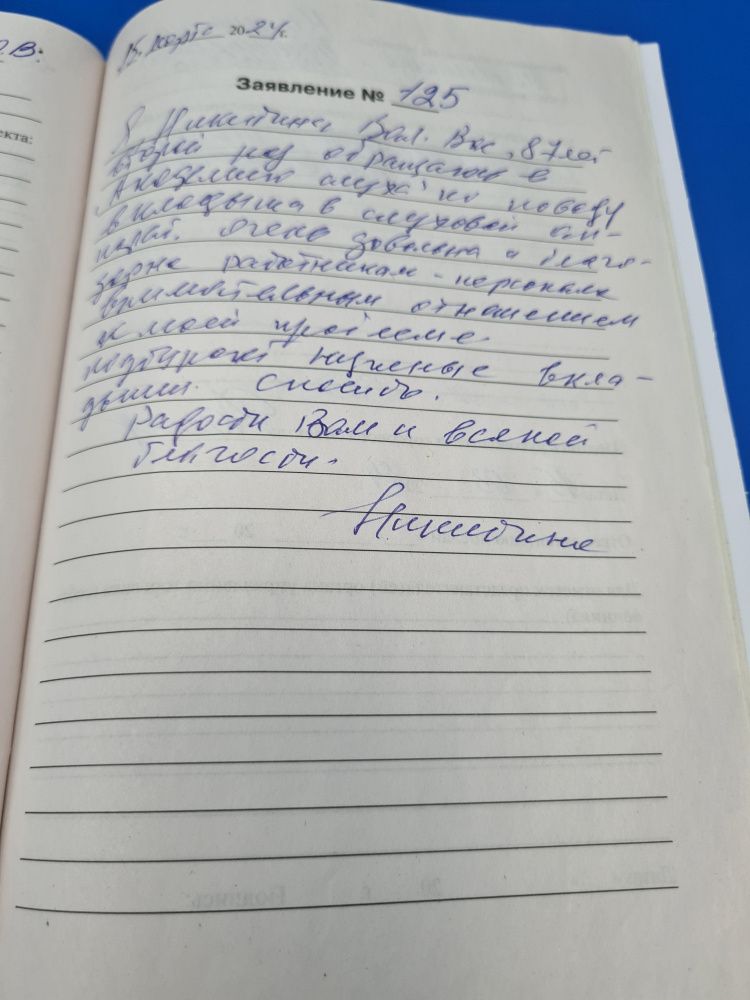 В.
екта:
15 марта 2024 г.
Заявление № 125
Я Никитина Вал. Вас, 87 лет
второй раз обращаюсь в
Академию слуха по поводу
вкладыша в слуховой ап-
парат. Очень довольна и благо-
дарна работникам - персонала
внимательным отношением
к моей проблеме.
подбирают нужные вкла-
дыши. Спасибо.
Радости Вам и всякой
благости.
Никитина